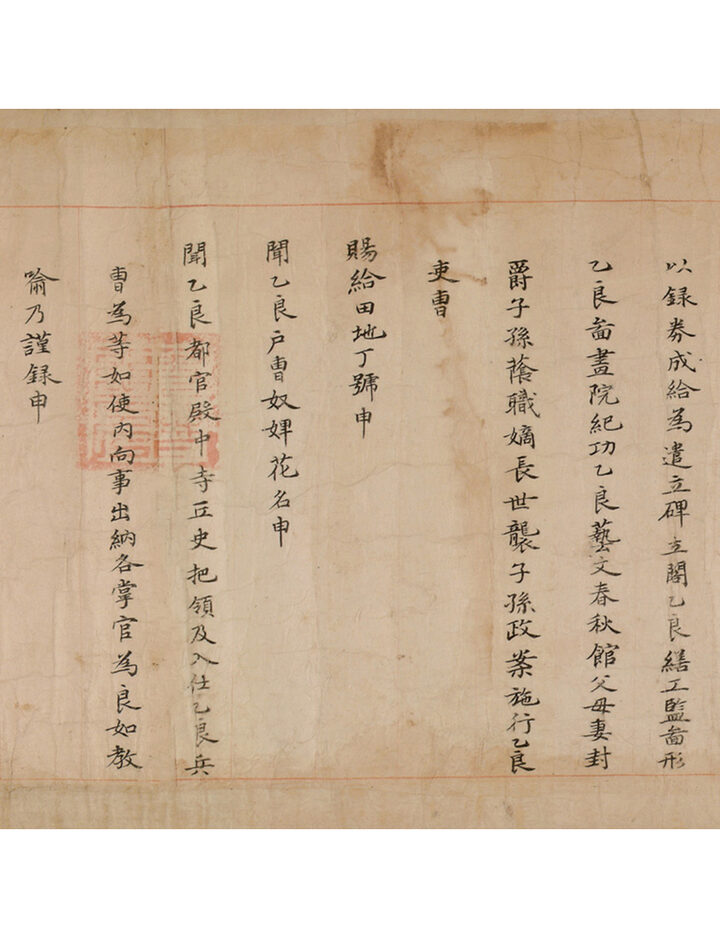 以録券成給為遣立碑立閣乙良繕工監啚形
乙良啚畫院紀功乙良藝文春秋館父母妻封
爵子孫蔭職嫡長世襲子孫政案施行乙良
吏曹
賜給田地丁號申
聞乙良戶曹奴婢花名申
聞乙良都官殿中寺丘史把領及入仕乙良兵
曹為等如使內向事出納各掌官為良如教
喻乃謹録申